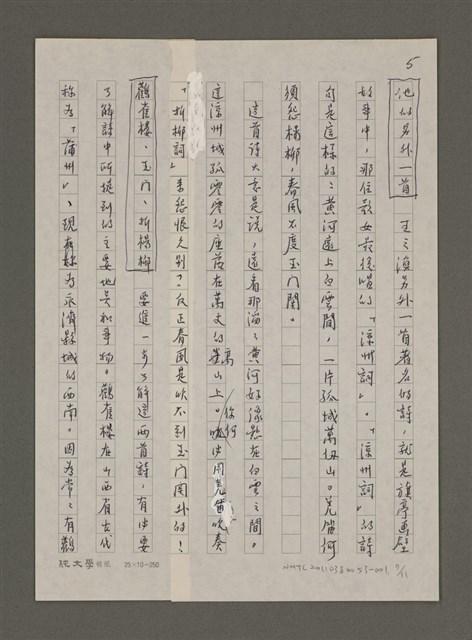 5
他的另外一首 王之渙另外一首著名的詩，就是旗亭畫壁
故事中，那位歌女最後唱的「涼州詞」。「涼州詞」的詩
句是這樣的：黃河遠上白雲間，一片孤城萬仞山。羌笛何
須怨楊柳，春風不度玉門關。
這首詩大意是說，遠看那滔滔黃河好像懸在白雲之間。
這涼州城孤零零的座落在萬丈的高山上。你何必用羌笛吹奏
「折柳詞」來怨恨久別？反正春風是吹不到玉門關外的！
鸛雀樓、玉門、折楊柳 要進一步了解這兩首詩，有必要
了解詩中所提到的主要地點和事物。鸛雀樓在山西省古代
稱為「蒲州」、現在稱為永濟縣城的西南。因為常常有鸛
文學 稿紙 25×10=250
NMTL20110380053-001 9/11